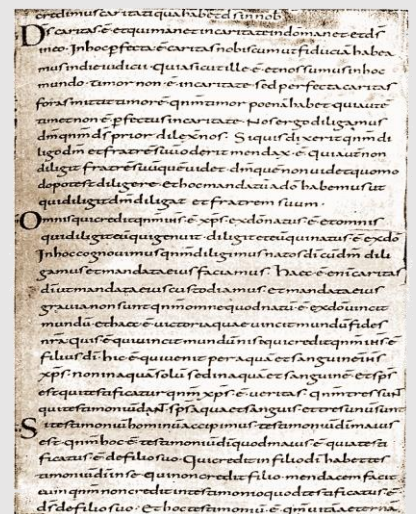 credimus caritati quā habet ds in nob
Ds caritas· ē· et qui manet in caritate in dō manet et ds
in eo· In hoc pfecta· ē· caritas nobiscum ut fiduciā habea
mus in die iudicii· Quia sicut ille· ē· et nos sumus in hoc
mundo· timor non· ē· in caritate· sed perfecta caritas
foras mittit timorē· qnm timor poenā habet· qui autē
timet non· ē· pfectus in caritate· Nos ergo diligamus
dm qnm ds prior dilex nos· Si quis dixerit qnm di
ligo dm et fratrē suū oderit mendax· ē· Qui autē non
diligit fratrē suū quē uidet· dm quē non uidet quomo
do potest diligere· et hoc mandatū ā dō habemus ut
qui diligit dm diligat et fratrem suum·
Omnis qui credit qnm ihs· ē· xps· ex dō natus· ē· et omnis
qui diligit eū qui genuit· diligit et eū qui natus· ē· ex dō
In hoc cognouimus qnm diligimus natos di cū dm dili
gamus et mandata eius faciamus· Haec· ē· enī caritas
di ut mandata eius custodiamus· et mandata eius
grauia non sunt qnm omne quod natū· ē· ex dō uincit
mundū· et haec· ē· uictoria quae uincit mundū fides
nra· quis· ē· qui uincit mundū nisi qui credit qnm ihs· ē·
filius di· hic· ē· qui uenit per aquā et sanguinē ihs
xps· non in aqua solū sed in aqua et sanguinē· et sps
est qui testificatur qnm xps· ē· ueritas· qnm tres sunt
qui testimoniū dant sps aqua et sanguis· et tres unū sunt
Si testimoniū hominū accipimus· testimoniū di maius
est· qnm hoc· ē· testimoniū di quod maius· ē· quia testi
ficatus· ē· de filio suo· Qui credit in filio di habet tes
timoniū di in se· Qui non credit filio· mendacem facit
eum qnm non credit in testimonio quod testificatus· ē·
ds de filio suo· Et hoc testimoniū· ē· qnm uitā aeternā